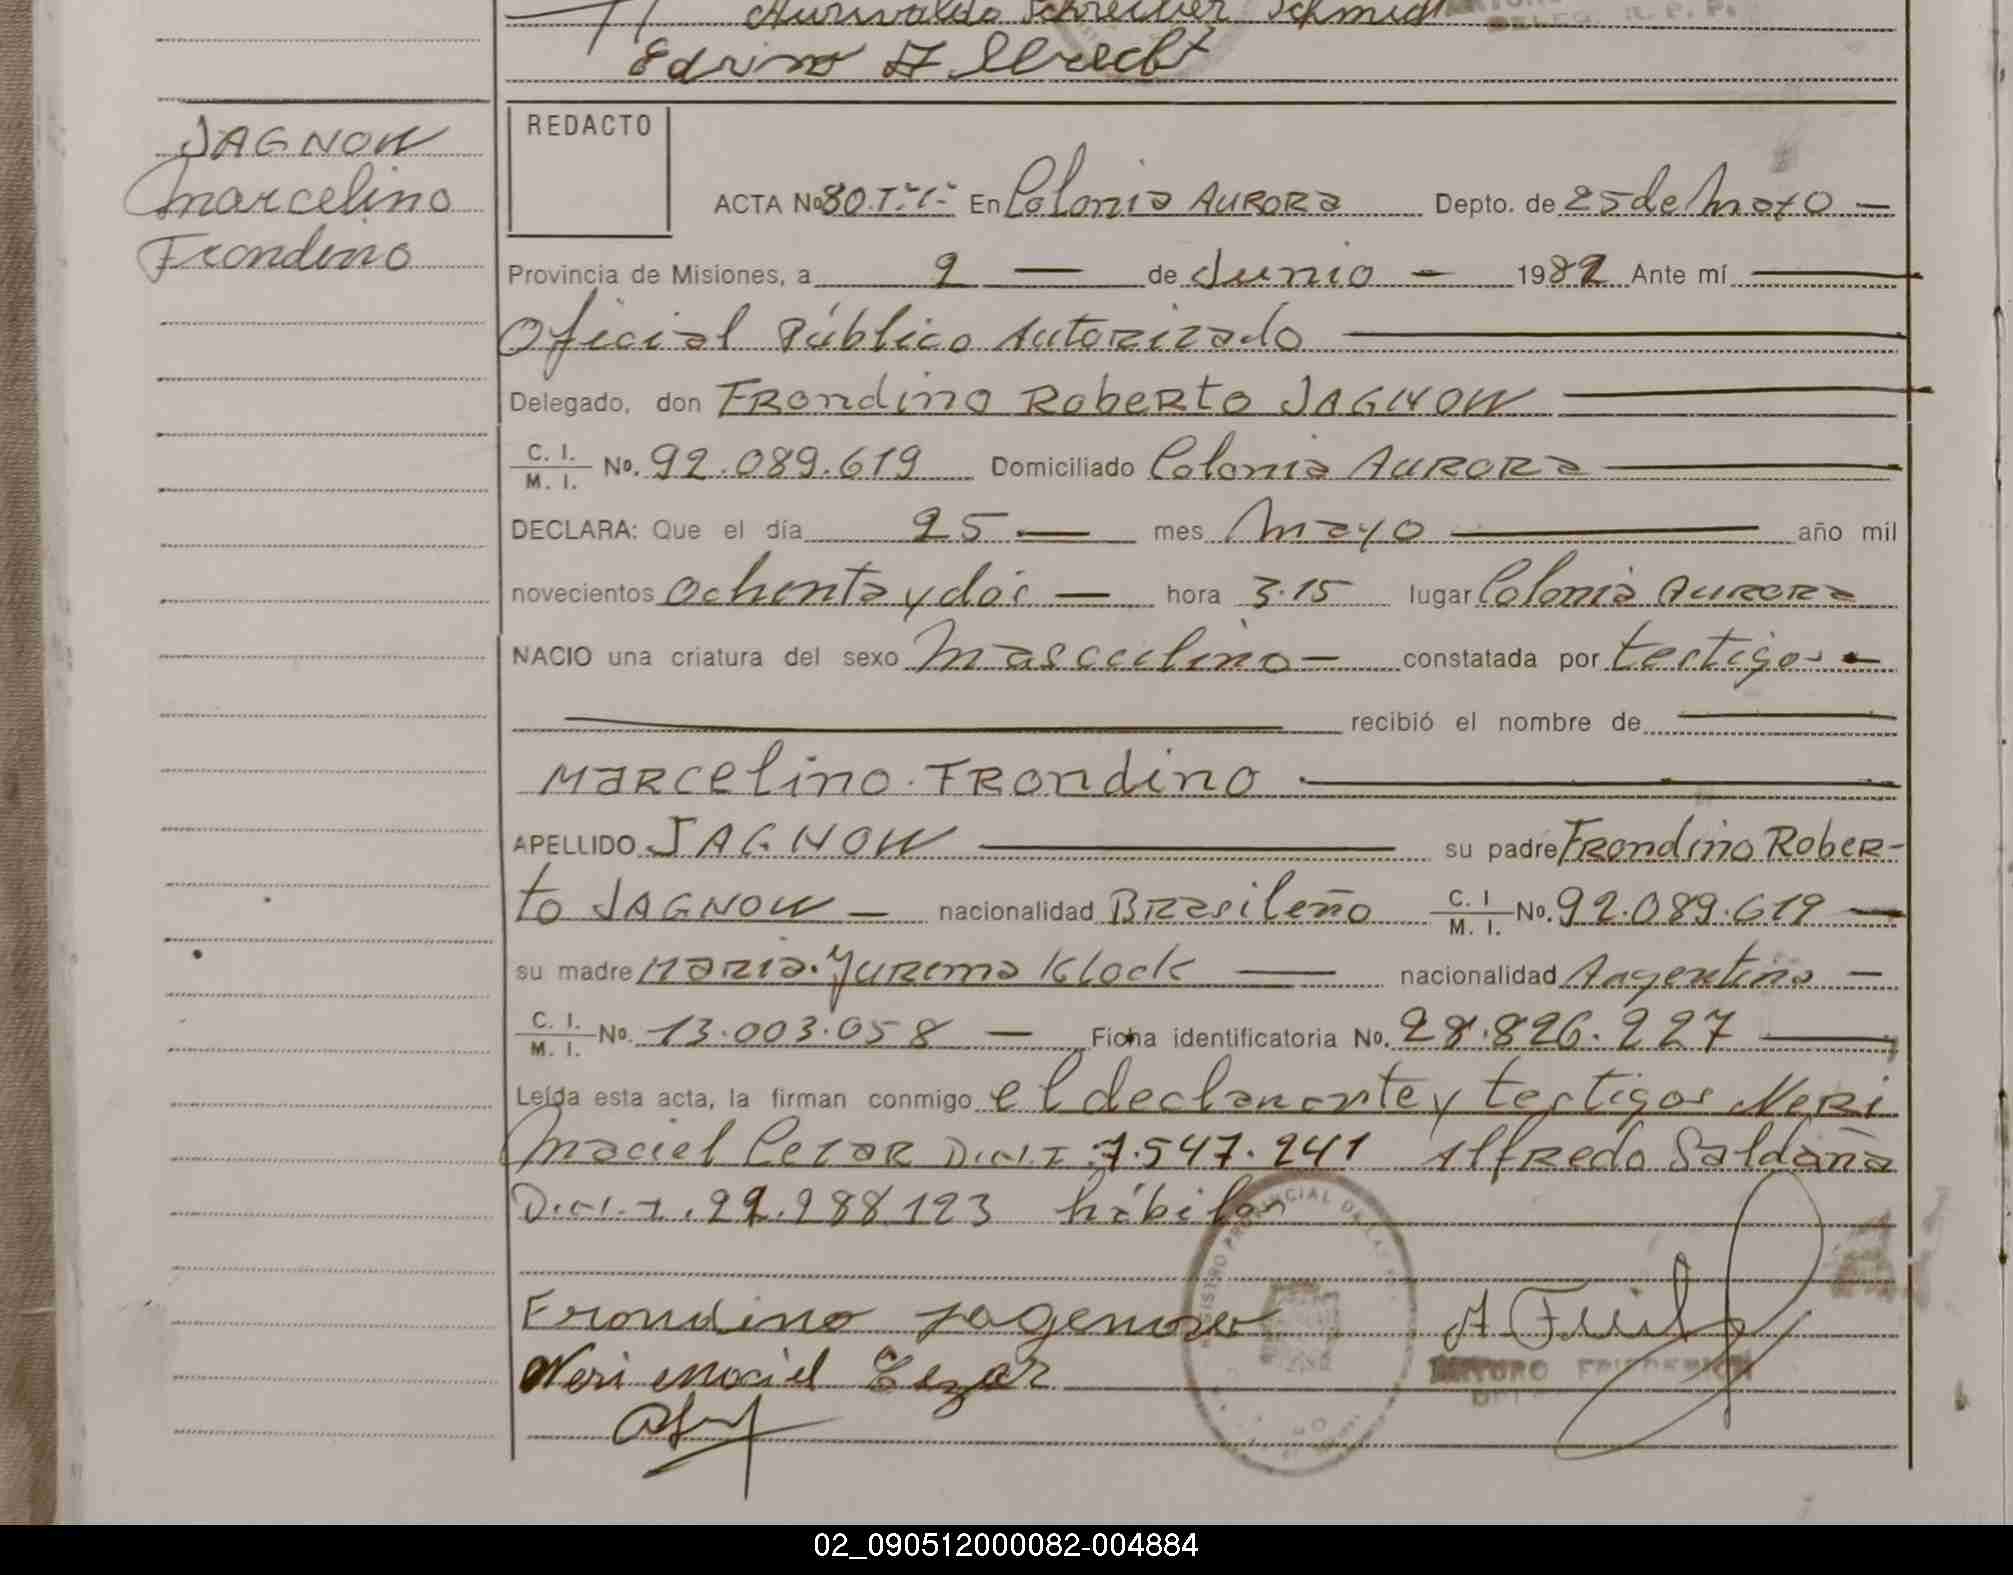 Aurivaldo Schreiber Schmidt
DELEG. R. P. P.
Edvino Albrecht
JAGNOW
Marcelino
Frondino
REDACTO
ACTA No 80. T: 1: En Colonia AURORA Depto. de 25 de Mayo —
Provincia de Misiones, a 2 — de Junio — 1982 Ante mí
Oficial Público Autorizado
Delegado, don FRondino RobeRto JAGNOW
C. I. / M. I. No. 92.089.619 Domiciliado Colonia AURORA
DECLARA: Que el día 25 — mes Mayo — año mil
novecientos ochenta y dos — hora 3.15 lugar Colonia AURORA
NACIO una criatura del sexo Masculino — constatada por testigos —
recibió el nombre de
MaRcelino. FRondino
APELLIDO JAGNOW su padre FRondino RobeR-
to JAGNOW — nacionalidad BRasileño C. I / M. I. No. 92.089.619 —
su madre MaRia. YuRema Klock — nacionalidad Argentina —
C. I. / M. I. No. 13.003.058 — Ficha identificatoria No. 28.826.227
Leída esta acta, la firman conmigo el declarante y testigos NeRi
Maciel CezaR D.N.I. 7.547.241 Alfredo Saldaña
D.N.I. 22.288123 hábiles
REGISTRO PROVINCIAL DE LAS
Frondino Jagenow
Neri Maciel Cezar
ARTURO FRIEDERICH
02_090512000082-004884